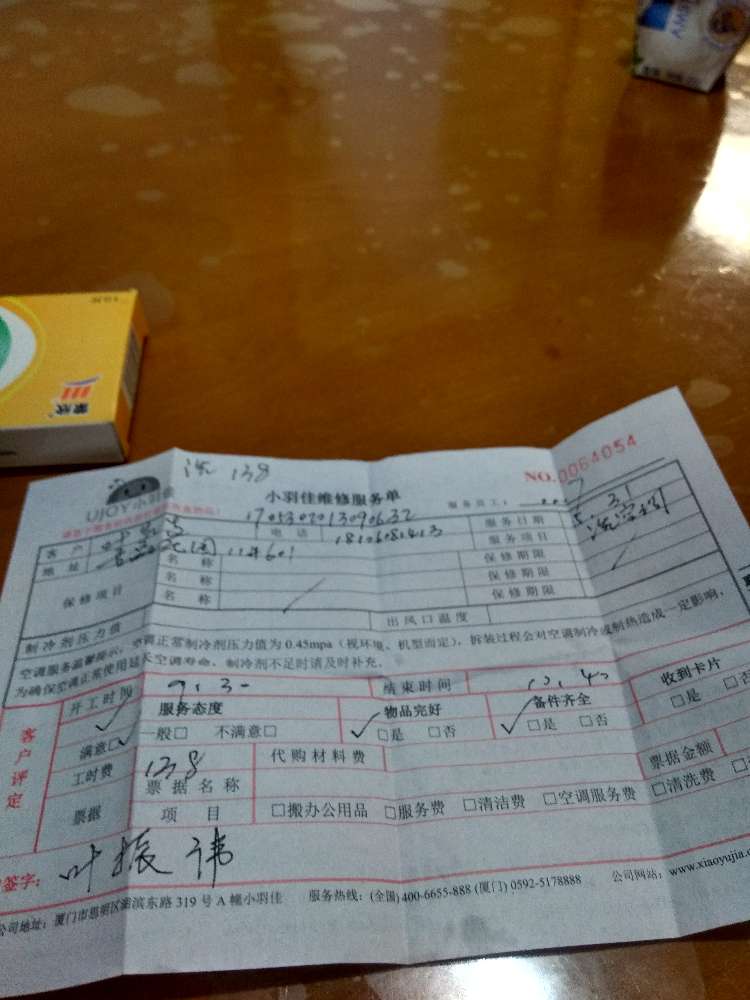 AMP
蒙欣
洗 138
NO.0064054
UJOY小羽佳
小羽佳维修服务单
服务员工：
1705302013090632
客户
电话
18106081413
服务日期
5.31
地址
花园 11#601
服务项目
保修项目
名称
保修期限
名称
保修期限
名称
保修期限
制冷剂压力值
出风口温度
空调服务温馨提示：空调正常制冷剂压力值为 0.45mpa（视环境、机型而定），拆装过程会对空调制冷或制热造成一定影响，
为确保空调正常使用延长空调寿命，制冷剂不足时请及时补充。
客户评定
开工时间
9:30
结束时间
服务态度
物品完好
备件齐全
收到卡片
满意□
一般□
不满意□
□是 □否
□是 □否
□是 □否
工时费
138
代购材料费
票据
票据名称
票据金额
项目
□搬办公用品 □服务费 □清洁费 □空调服务费 □清洗费
签字：
叶振讳
公司地址：厦门市思明区湖滨东路 319 号 A 幢小羽佳 服务热线：(全国) 400-6655-888 (厦门) 0592-5178888 公司网站：www.xiaoyujia.c